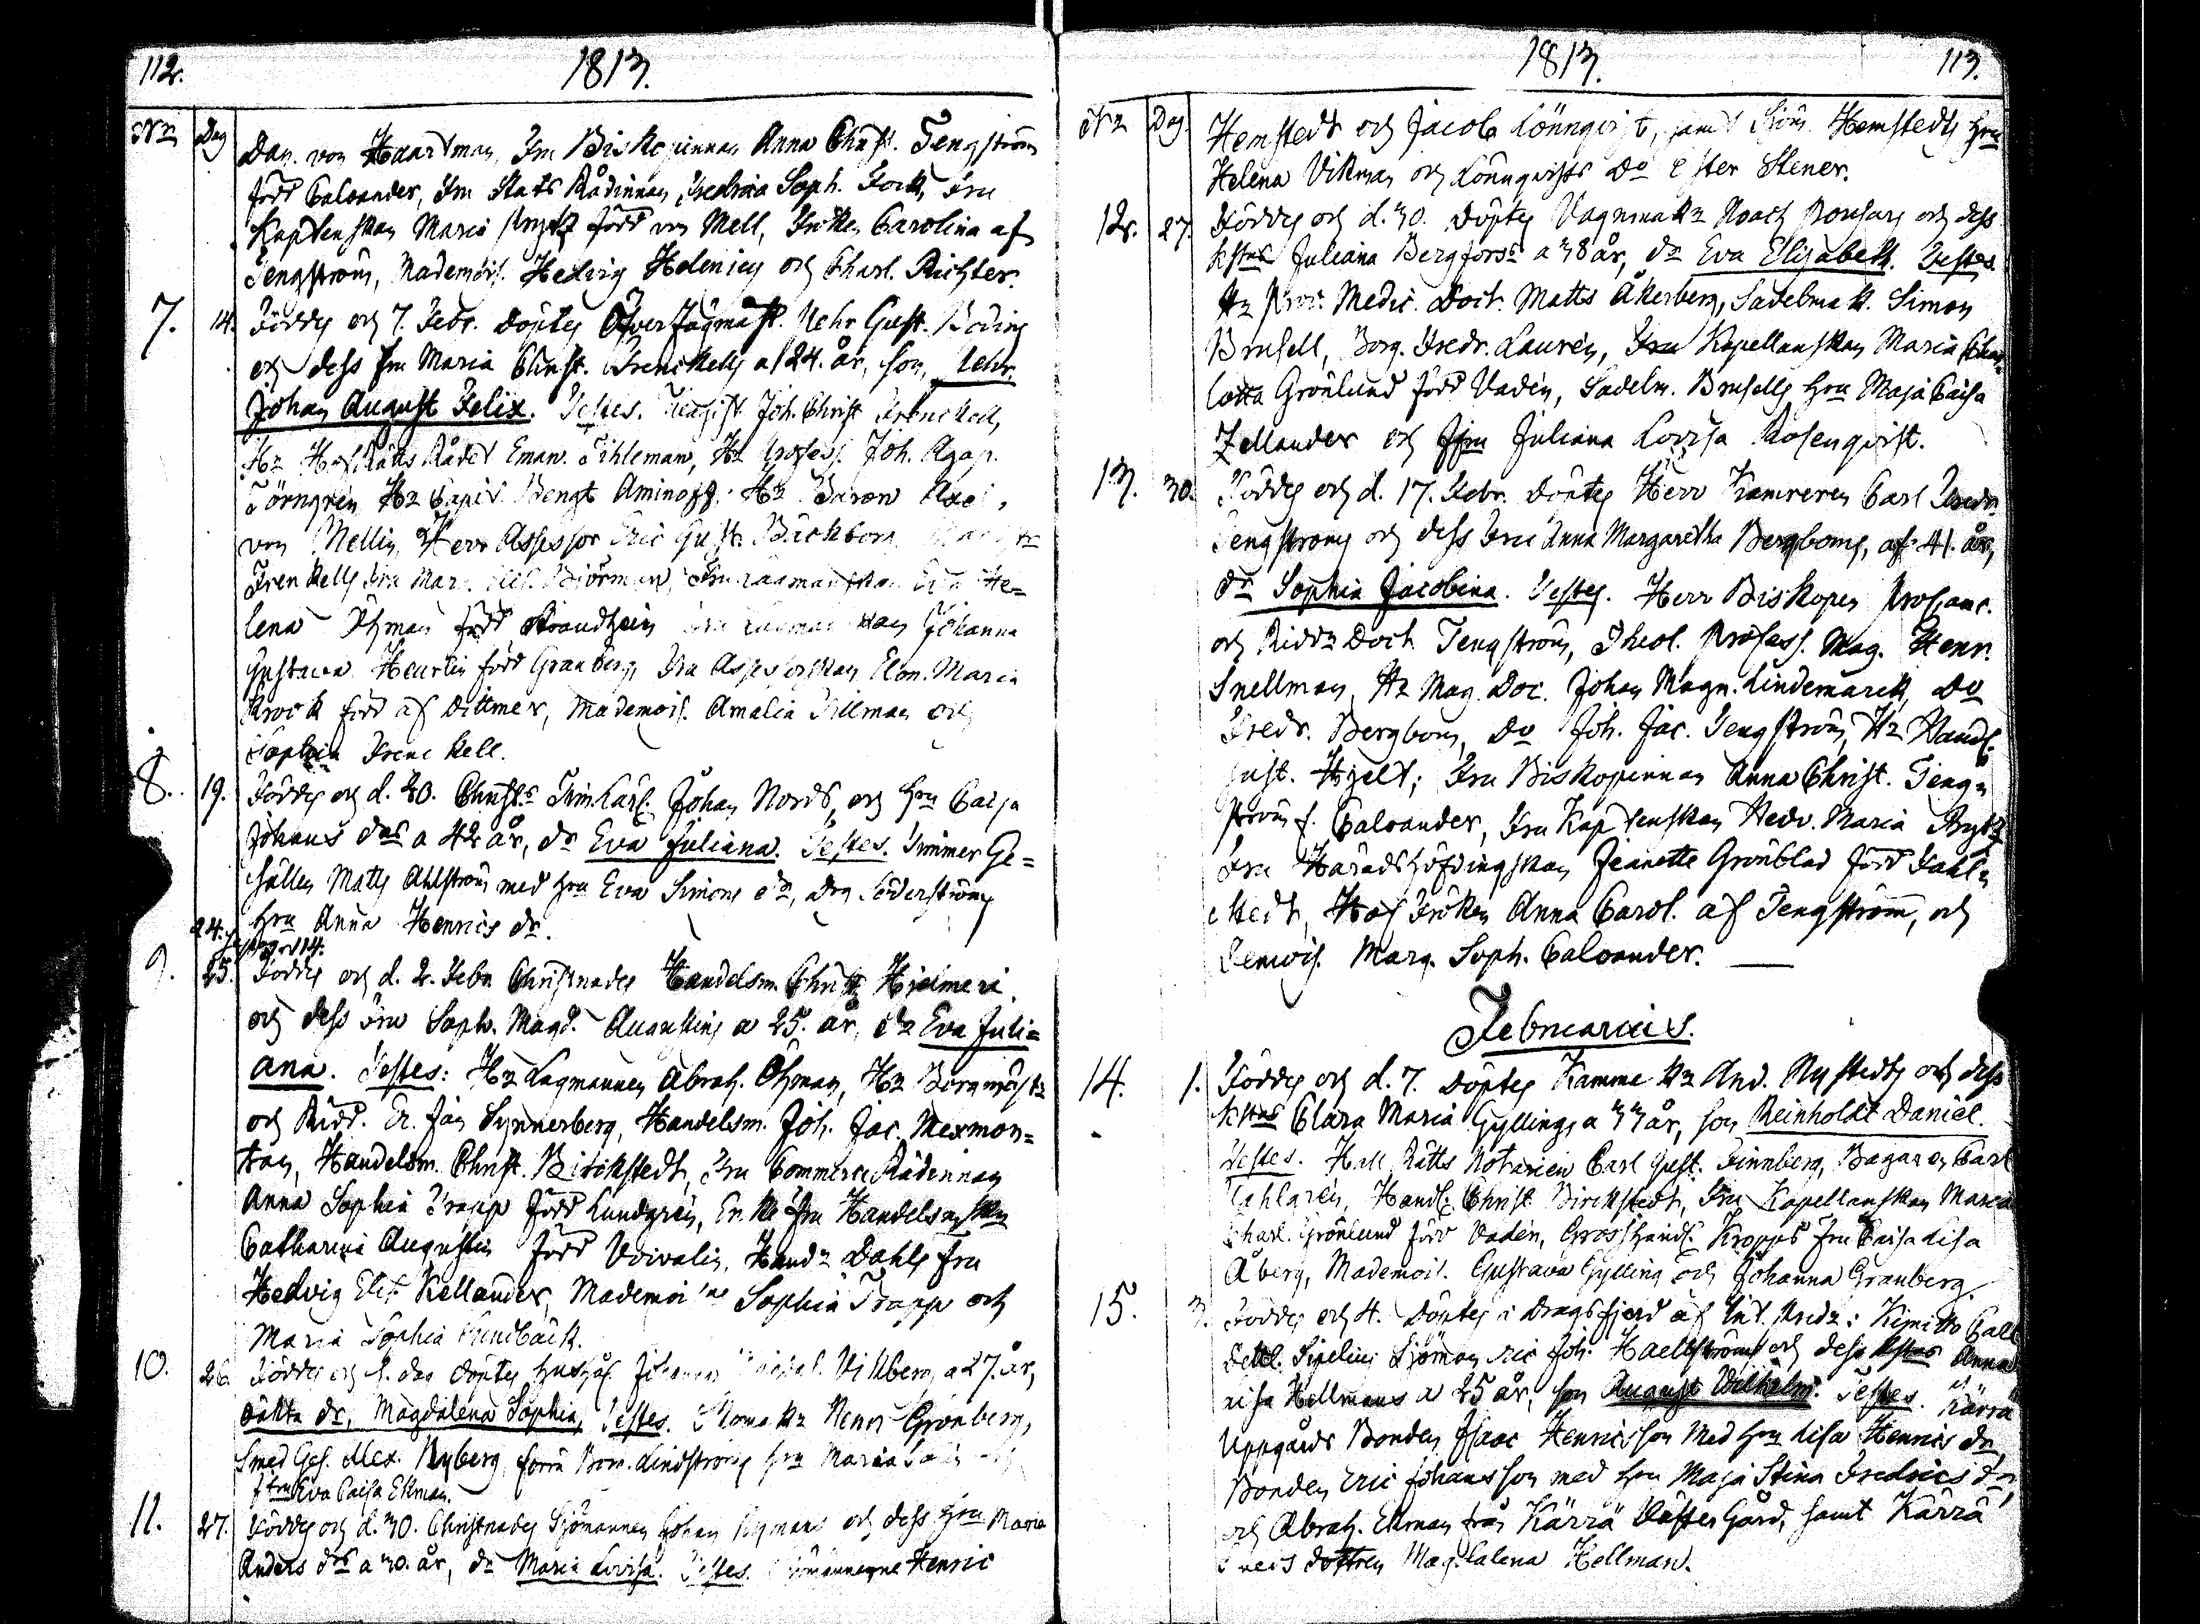 112.
1813.
Nr
Dag
Dan. von Haartman, Fru Biskopinnan Anna Christ. Tengström
född Caloander, Fru Stats Rådinnan Fredrica Soph. Fock, Fru
Kaptenskan Maria född von Mell, Fröken Carolina af
Tengström, Mademois. Hedvig Helenius och Charl. Richter.
7.
14.
Föddes och 7. Febr. Döptes Öfver Jägmäst. Gust. Boding
och dess fru Maria Christ. Frenckells a 24. år, son,
Johan August Felix. Testes. Joh. Christ Frenckell,
Hr HofRätts Rådet Eman. Hr Profess. Joh. Agap.
Törngren Hr Capit. Bengt Aminoff, Hr Baron
von Mellin, Herr Assessor Eric Gust. Bäckbom
Frenkells fru Mar. Björman, Eva He=
lena Öhman född Johanna
Gustava Heurlin född Granberg, Fru Assessorskan Elon. Maria
Krook född af Dittmer, Mademois. Amalia Tillman och
Sophia Frenckell.
8.
19.
Föddes och d. 30. Christs Tim.karl. Johan Nords, och hru Caisa
Johans dotr a 42 år, dr Eva Juliana. Testes. Timmer Ge=
sällen Matts Ahlström med hru Eva Simons dr, Drg Söderströms
hru Anna Henrics dr.
24.
9.
25.
Föddes och d. 2. Febr Christnades Handelsm. Hjelmeri
och dess fru Soph. Magd. Augustins a 25. år, dr Eva Juli=
ana. Testes: Hr Lagmannen Abrah. Öhman, Hr Borgmäst
och Ridd. Er. Joh. Synnerberg, Handelsm. Joh. Jac. Mexmon=
tan, Handelsm. Christ. Birckstedt, Fru Commerce Rådinnan
Anna Sophia Trapp född Lundgren, Enke fru Handelsmskan
Catharina Augustin född Voivalin, Hand Dahls fru
Hedvig Elis. Kellander, Mademoi Sophia Trapp och
Maria Sophia Sundbäck.
10.
26.
Föddes och döptes Vikberg, a 27. år,
oäkta dr, Magdalena Sophia, Testes. Skomakr Henr Grönberg,
Smed Ges. Alex. Nyberg, förra Lindströms hru Maria
Jfru Eva Caisa Ekman.
11.
27.
Föddes och d. 30. Christnades Sjömannen Johan Nymans och dess hru Maria
Anders dr a 30. år, dr Maria Lovisa. Testes. Sjömännerne Henric
1813.
113.
Nr
Dag.
Hemstedt och Jacob Lönnqvist, samt Hemstedts hru
Helena Vikman och Lönnqvists Do Ester Stener.
12.
27.
Föddes och d. 30. Döptes Vagnmakr Noach och dess
hstru Juliana Bergfors a 38 år, dr Eva Elisabeth. Testes
Hr Medic. Doct. Matts Åkerberg, Sadelmak. Simon
Brusell, Borg. Fredr. Lauren, Fru Kapellanskan Maria Char=
lotta Grönlund född Vaden, Sadelm. Brusells hru Maja Caisa
Zellander och Jfru Juliana Lovisa Rosenqvist.
13.
30.
Föddes och d. 17. Febr. Döptes Herr Kamreren Carl Fredr
Tengströms och dess Fru Anna Margaretha Bergboms, af 41. år,
dr Sophia Jacobina. Testes. Herr Biskopen Procanc.
och Riddr Doct. Tengström, Theol. Profess. Mag. Henr.
Snellman, Hr Mag. Doc. Johan Magn. Lindemarck, Do
Fredr. Bergbom, Do Joh. Jac. Tengström, Hr Handl.
Gust. Hjelt; Fru Biskopinnan Anna Christ. Teng=
ström f. Caloander, Fru Kaptenskan Hedv. Maria
Fru Häradshöfdingskan Jeanette Grönblad född Fahl=
stedt, Hof Fröken Anna Carol. af Tengström, och
Demois. Marg. Soph. Caloander.
Februarius.
14.
1.
Föddes och d. 7. Döptes Kamme And. Nystedts och dess
hstru Clara Maria Gyllings a 33 år, son Reinholdt Daniel.
Testes. Rätts Notarien Carl Gust. Finnberg, Bagaren Carl
Handl. Christ Birckstedt, Fru Kapellanskan Maria
Charl. Grönlund född Vaden, Grosshandl. Kropps fru Caisa Lisa
Åberg, Mademois. Gustava Gylling och Johanna Granberg.
15.
3.
Föddes och 4. Döptes i Dragsfjerd af Vic. i Kimitto
Sipelius Sjöman Eric Joh. Haellströms och dess hstru Anna
Lisa Hellmans a 25 år, son August Wilhelm. Testes. Kärrä
Uppgårds Bonden Isaac Henricsson med hru Lisa Henrics dr,
Bonden Eric Johansson med hru Maja Stina Fredrics dr,
och Abrah. Ekman från Kärrä Väster Gård, samt Kärrä
dottren Magdalena Hellman.